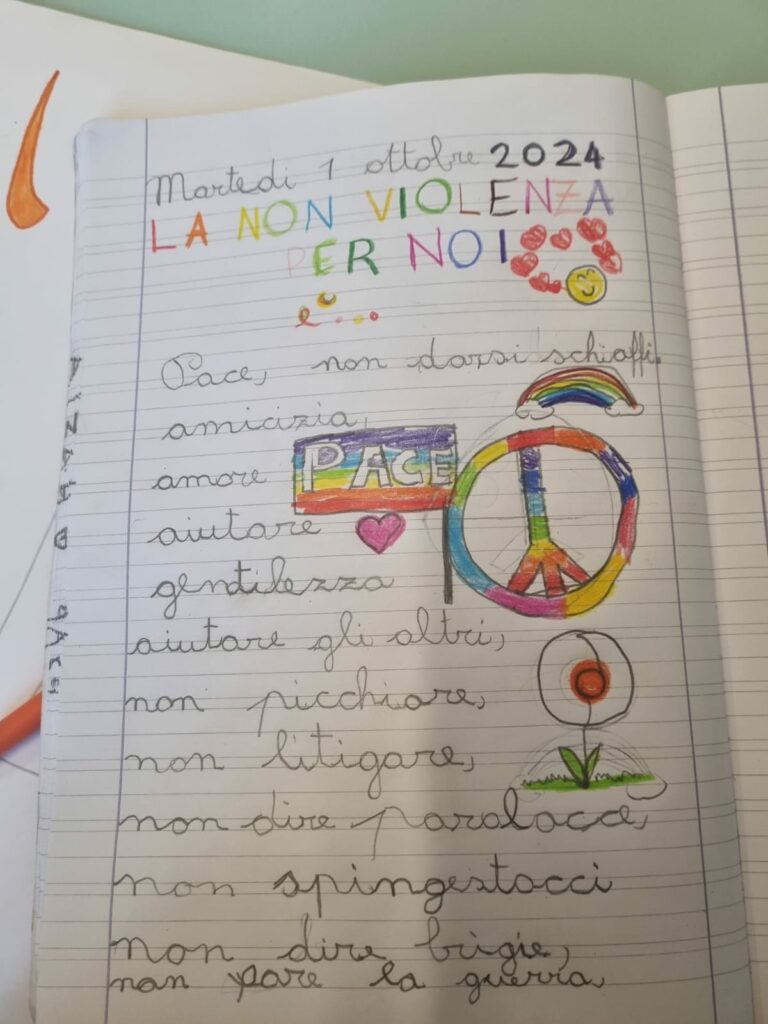 Martedi 1 ottobre 2024
LA NON VIOLENZA
PER NOI
è ....
Pace, non darsi schiaffi.
amicizia,
amore
PACE
aiutare
gentilezza
aiutare gli altri,
non picchiare,
non litigare,
non dire parolacce,
non
non dire brigie,
non fare la guerra,